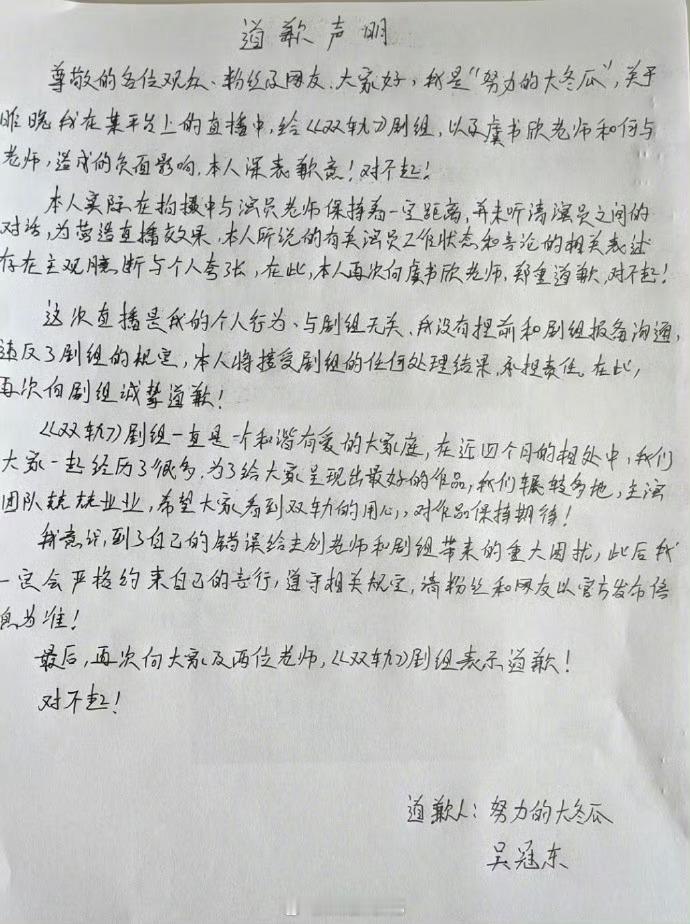 道歉声明
尊敬的各位观众、粉丝及网友、大家好，我是“努力的大冬瓜”，关于
昨晚我在某平台上的直播中，给《双轨》剧组，以及虞书欣老师和何与
老师，造成的负面影响，本人深表歉意！对不起！
本人实际在拍摄中与演员老师保持着一定距离，并未听清演员之间的
对话，为营造直播效果，本人所说的有关演员工作状态和言论的相关表述
存在主观臆断与个人夸张，在此，本人再次向虞书欣老师，郑重道歉，对不起！
这次直播是我的个人行为、与剧组无关、我没有提前和剧组报备沟通，
违反了剧组的规定，本人将接受剧组的任何处理结果，承担责任。在此，
再次向剧组诚挚道歉！
《双轨》剧组一直是一个和谐有爱的大家庭，在近四个月的相处中，我们
大家一起经历了很多，为了给大家呈现出最好的作品，我们辗转多地，主演
团队兢兢业业，希望大家看到双轨的用心，对作品保持期待！
我意识到了自己的错误给主创老师和剧组带来的重大困扰，此后我
一定会严格约束自己的言行，遵守相关规定，请粉丝和网友以官方发布信
息为准！
最后，再次向大家及两位老师，《双轨》剧组表示道歉！
对不起！
道歉人：努力的大冬瓜
吴冠东